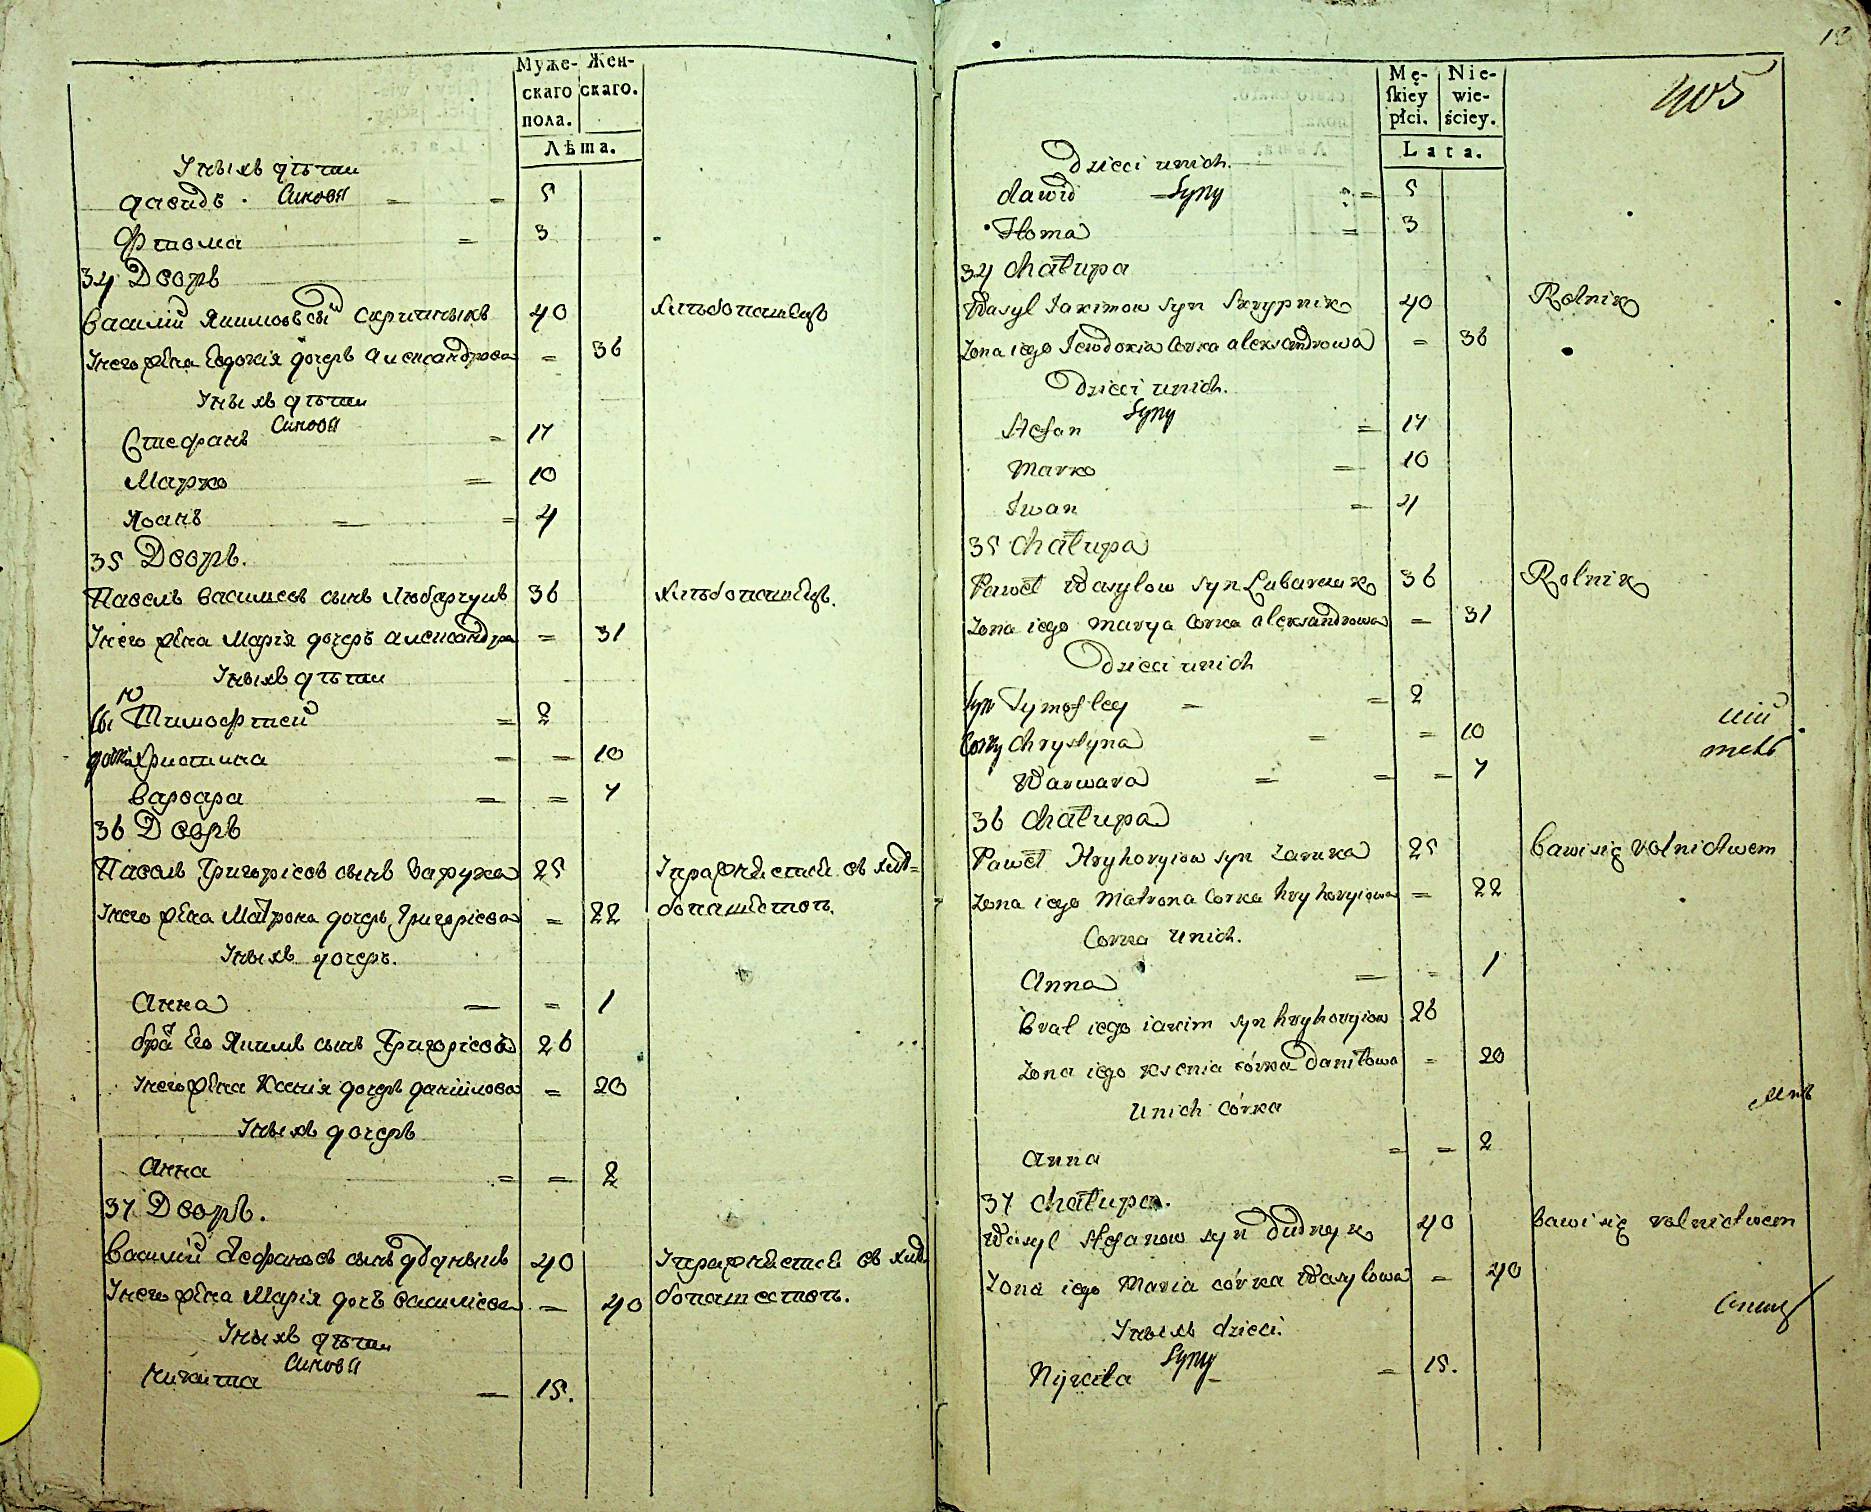 Муже- Жен-
скаго скаго.
пола.
Лѣта.
У ныхъ дѣти
Давидъ Синовя 5
Фтома 3
34 Дворъ
Василий Якимовъ сы Скрипныкъ 40 Хлѣбопашецъ
У него жена Евдокия дочеръ Александрова 36
У ныхъ дѣти
Синовя
Стефанъ 17
Марко 10
Иванъ 4
35 Дворъ.
Павелъ Василиевъ сынъ Любарчукъ 36 Хлѣбопашецъ.
У него жена Мария дочеръ Александра 31
У ныхъ дѣти
Сы Тимофтей 2
дочки Христина 10
Варвара 7
36 Дворъ
Павелъ Григориевъ сынъ Зарука 25 Упражняется въ хлѣ-
У него жена Матрона дочеръ Григориева 22 бопашествѣ.
У ныхъ дочеръ.
Анна 1
братъ Его Якимъ сынъ Григориевъ 26
У него жена Ксения дочеръ Данилова 20
У ныхъ дочеръ
Анна 2
37 Дворъ.
Василий Стефановъ сынъ Дудныкъ 40 Упражняется въ хлѣ-
У него жена Мария дочъ Василиева 40 бопашествѣ.
У ныхъ дѣти
Синовя
Никита 15.
13
405
Mę- Nie-
skiey wie-
płci. ściey.
Lata.
Dzieci unich.
dawid Syny 5
Homa 3
34 chałupa
Wasyl Iakimow syn Skrypnik 40 Rolnik
Zona iego Iewdokia Corka alexandrowa 36
Dzieci unich.
Syny
Stefan 17
Marko 10
Iwan 4
35 chałupa
Paweł Wasylow syn Lubarczuk 36 Rolnik
Zona iego Marya Corka alexandrowa 31
Dzieci unich
Syn Tymoftey 2
Corky Chrystyna 10
Warwara 7
36 chałupa
Paweł Hryhoryiow syn Zaruka 25 bawi się rolnictwem
Zona iego Matrona Corka hryhoryiowa 22
Corka unich.
Anna 1
Brat iego iakim syn hryhoryiow 26
Zona iego Ksenia córka daniłowa 20
Unich córka
Anna 2
37 chałupa.
Wasyl Stefanow syn dudnyk 40 bawi się rolnictwem
Zona iego Maria córka Wasylowa 40
У ныхъ dzieci.
Syny
Nykita 15.